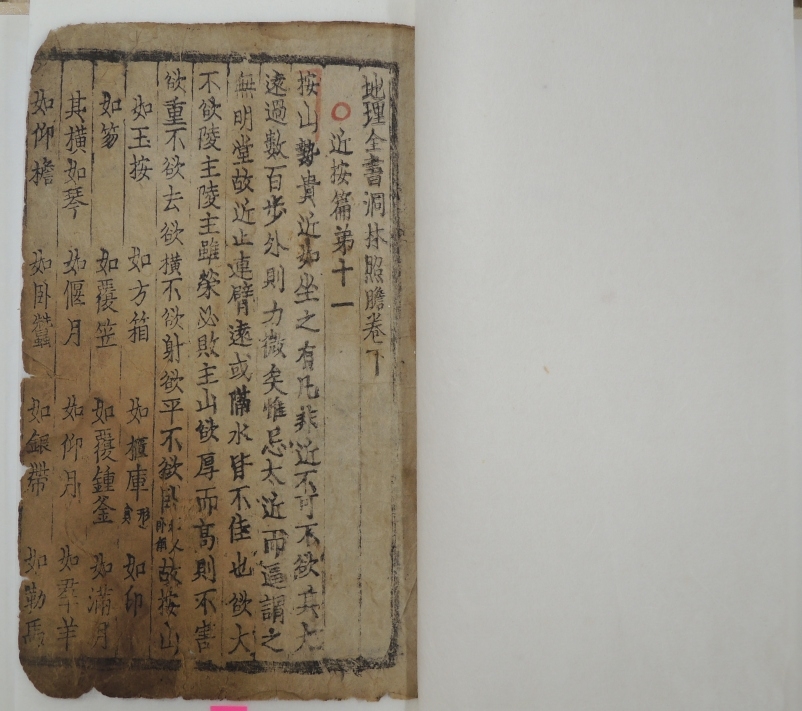 地理全書洞林照膽卷下
近按篇第十一
按山勢貴近如坐之有几非近不可不欲其大
遠過數百步外則力微矣惟忌太近而逼謂之
無明堂故近止連臂遠或隔水皆不佳也欲大
不欲陵主陵主雖榮必敗主山欲厚而高則不害
欲重不欲去欲橫不欲射欲平不欲臥 人 故按山
如玉按 如方箱 如櫃庫 如印
如笏 如覆笠 如覆鍾釜 如滿月
其橫如琴 如偃月 如仰月 如羣羊
如仰檐 如臥蠶 如銀帶 如勒馬